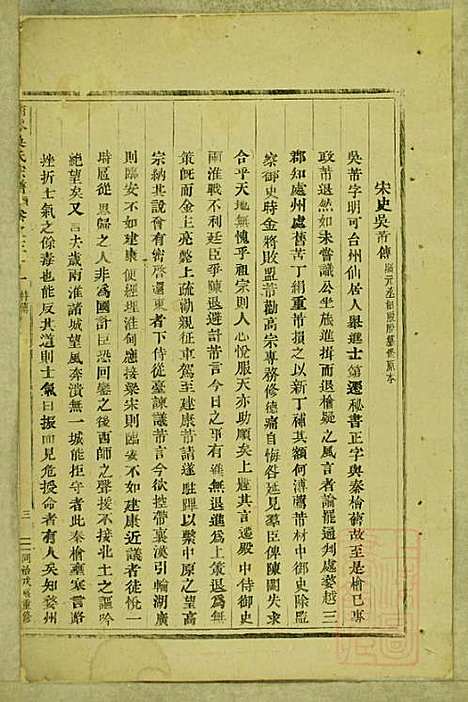 宋史吳芾傳
吳芾字明可台州仙居人舉進士第遷秘書正字與秦檜舊故至是檜已專
政芾退然如未嘗識公坐旅進揖而退檜疑之風言者論罷通判處婺越三
郡知處州處舊苦丁絹重芾損之以新丁補其額何溥薦芾材中御史除監
察御史時金將敗盟芾勸高宗專務修德痛自悔咎延見羣臣俾陳闕失求
合乎天地無愧乎祖宗則人心悅服天亦助順矣上韙其言遷殿中侍御史
兩淮戰不利廷臣爭陳退避計芾言今日之事有進無退進為上策退為無
策旣而金主亮斃上疏勸親征車駕至建康芾請遂駐蹕以繫中原之望高
宗納其說會有密啓還東者下侍從臺諫議芾言今欲控帶襄漢引輸湖廣
則臨安不如建康便經理淮甸應接梁宋則臨安不如建康近議者徒悅一
時扈從思歸之人非為國計臣恐回鑾之後西師之聲援不接北土之謳吟
絶望矣又言去歲兩淮諸城望風奔潰無一城能拒守者此秦檜壅塞言路
挫折士氣之餘毒也能反其道則士氣日振而見危授命者有人矣知婺州
吳氏宗譜
三